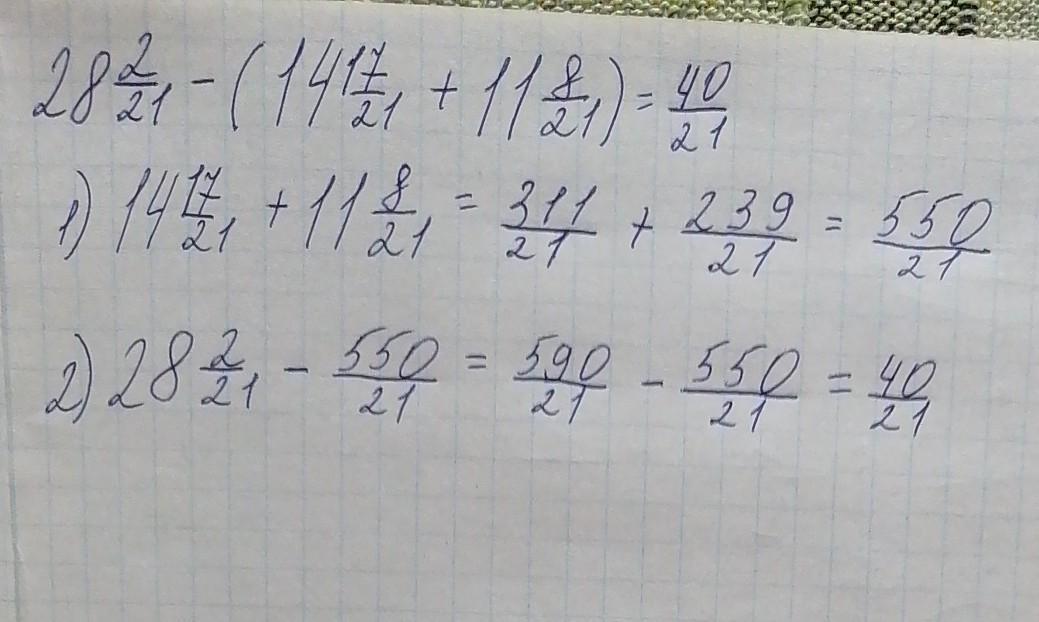 28 2/21 - (14 17/21 + 11 8/21) = 40/21
1) 14 17/21 + 11 8/21 = 311/21 + 239/21 = 550/21
2) 28 2/21 - 550/21 = 590/21 - 550/21 = 40/21